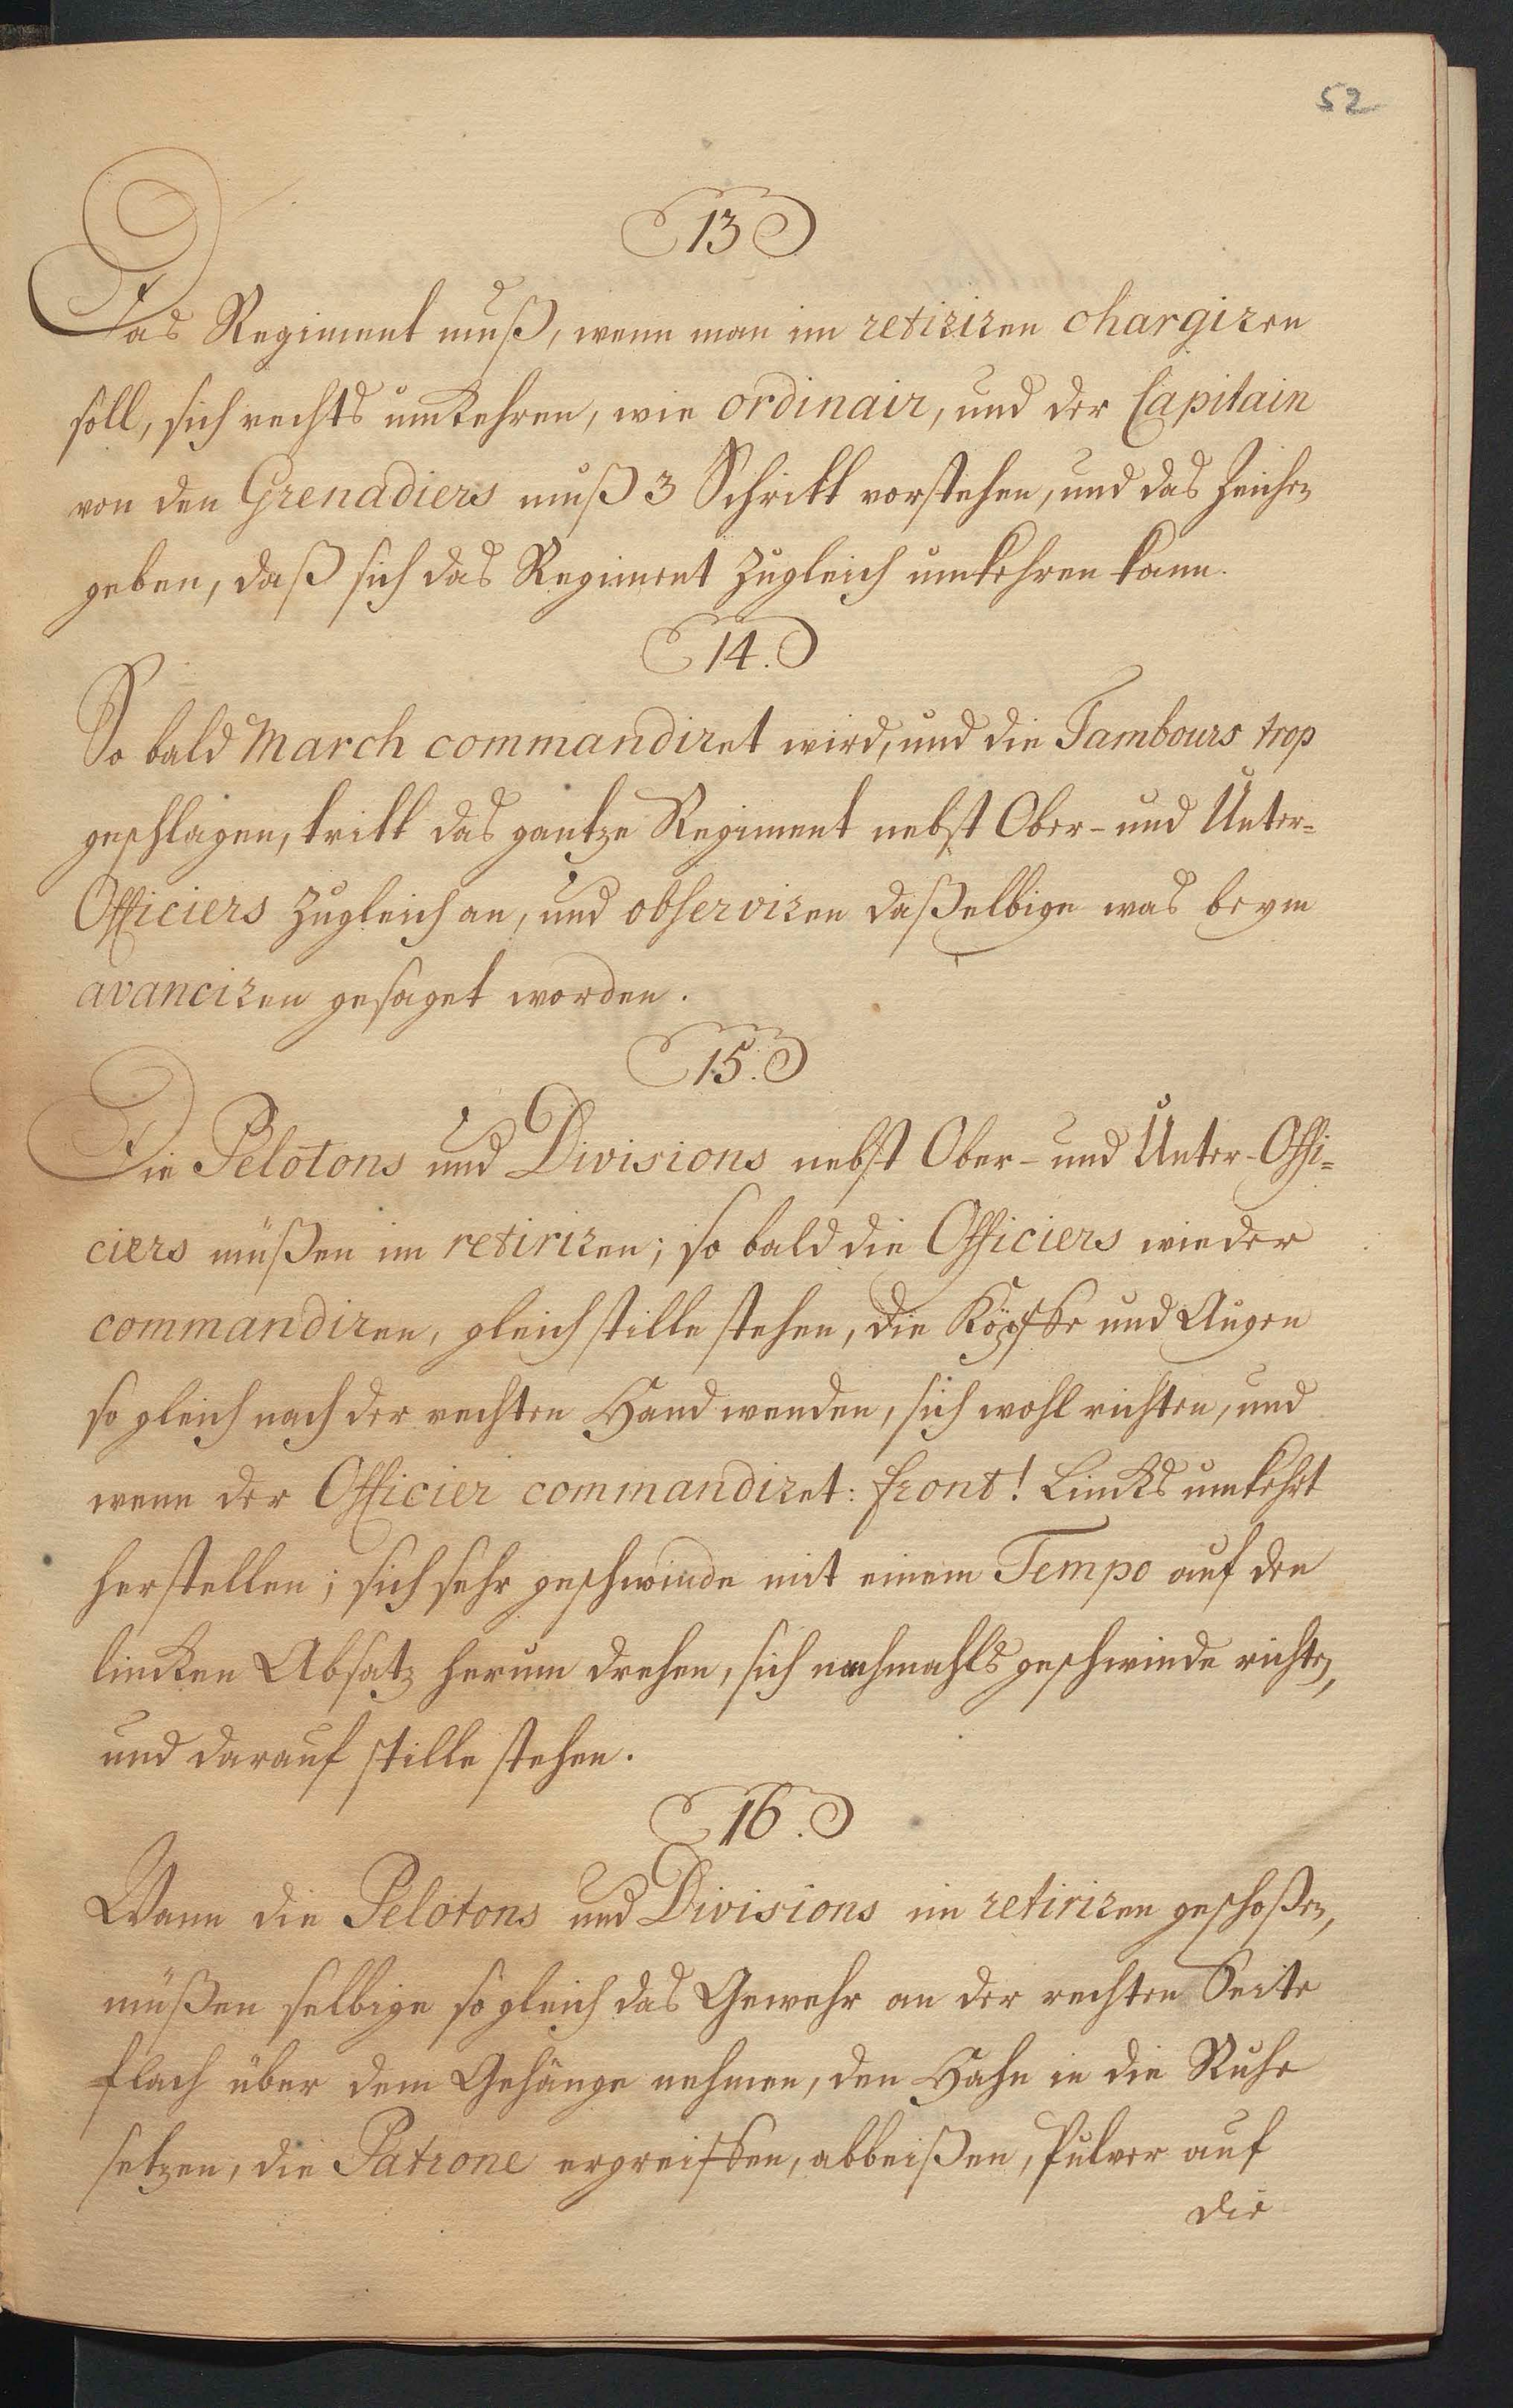 52
13
Das Regiment muß, wenn man im retiriren chargiren
soll, sich rechts umkehren, wie ordinair, und der Capitain
von den Grenadiers muß 3 Schritt vorstehen, und das Zeichen
geben, daß sich das Regiment zugleich umkehren kann.
14.
So bald March commandiret wird, und die Tambours trop
geschlagen, tritt das gantze Regiment nebst Ober- und Unter-
Officiers zugleich an, und observiren daßelbige was beym
avanciren gesaget worden.
15.
Die Pelotons und Divisions nebst Ober- und Unter-Offi-
ciers müßen im retiriren; so bald die Officiers wieder
commandiren, gleich stille stehen, die Köpffe und Augen
so gleich nach der rechten Hand wenden, sich wohl richten, und
wenn der Officier commandiret: front! Lincks umkehrt
herstellen; sich sehr geschwinde mit einem Tempo auf den
lincken Absatz herum drehen, sich nochmahls geschwinde richten,
und darauf stille stehen.
16.
Wann die Pelotons und Divisions im retiriren geschoßen,
müßen selbige so gleich das Gewehr an der rechten Seite
flach über dem Gehänge nehmen, den Hahn in die Ruhe
setzen, die Patrone ergreiffen, abbeißen, Pulver auf
die